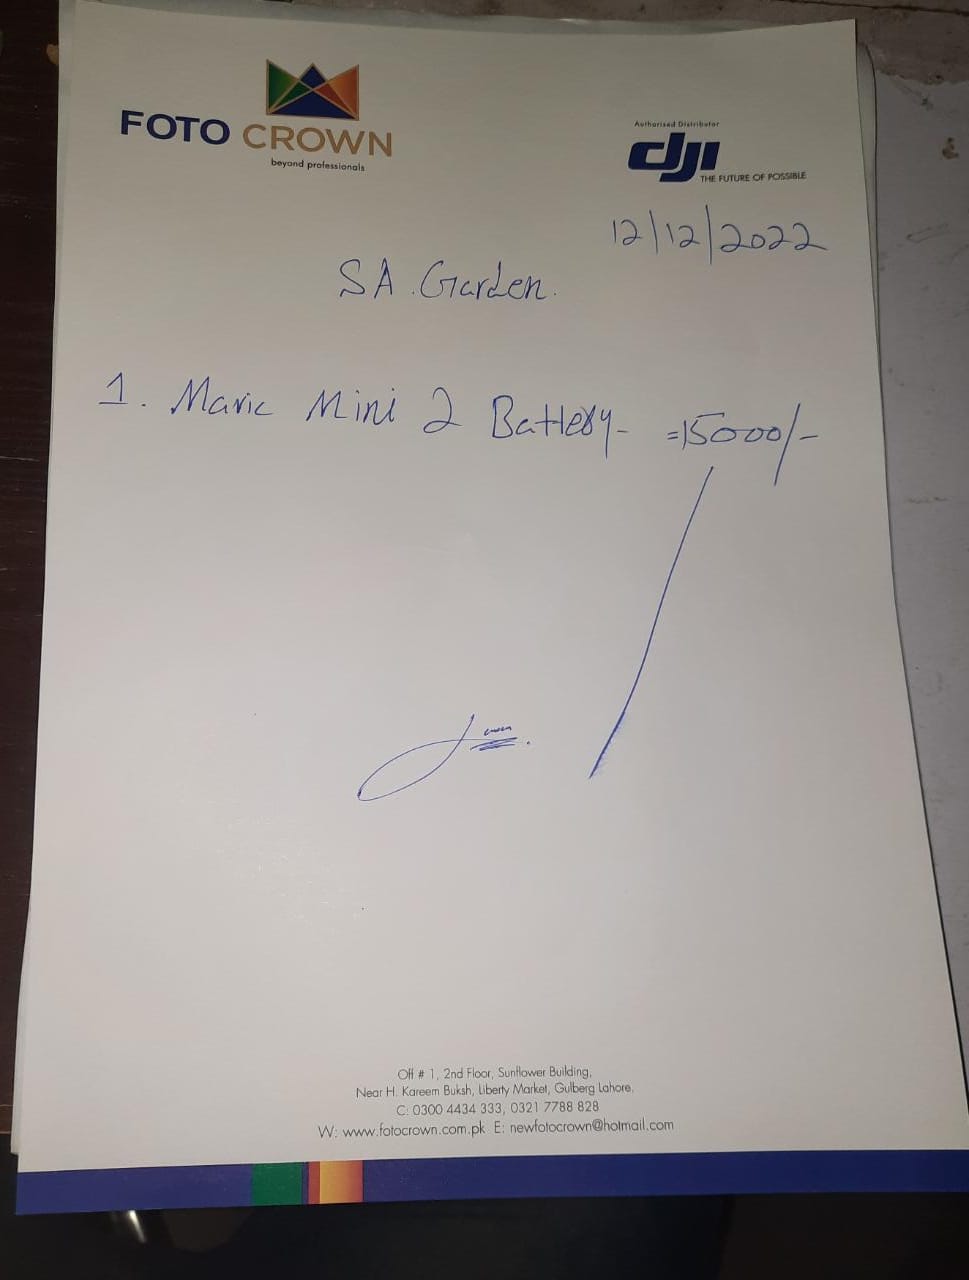 FOTO CROWN
beyond professionals
Authorised Distributor
dji
THE FUTURE OF POSSIBLE
12/12/2022
SA. Garden.
1. Mavic Mini 2 Battery- =15000/-
Off # 1, 2nd Floor, Sunflower Building,
Near H. Kareem Buksh, Liberty Market, Gulberg Lahore.
C: 0300 4434 333, 0321 7788 828
W: www.fotocrown.com.pk E: newfotocrown@hotmail.com